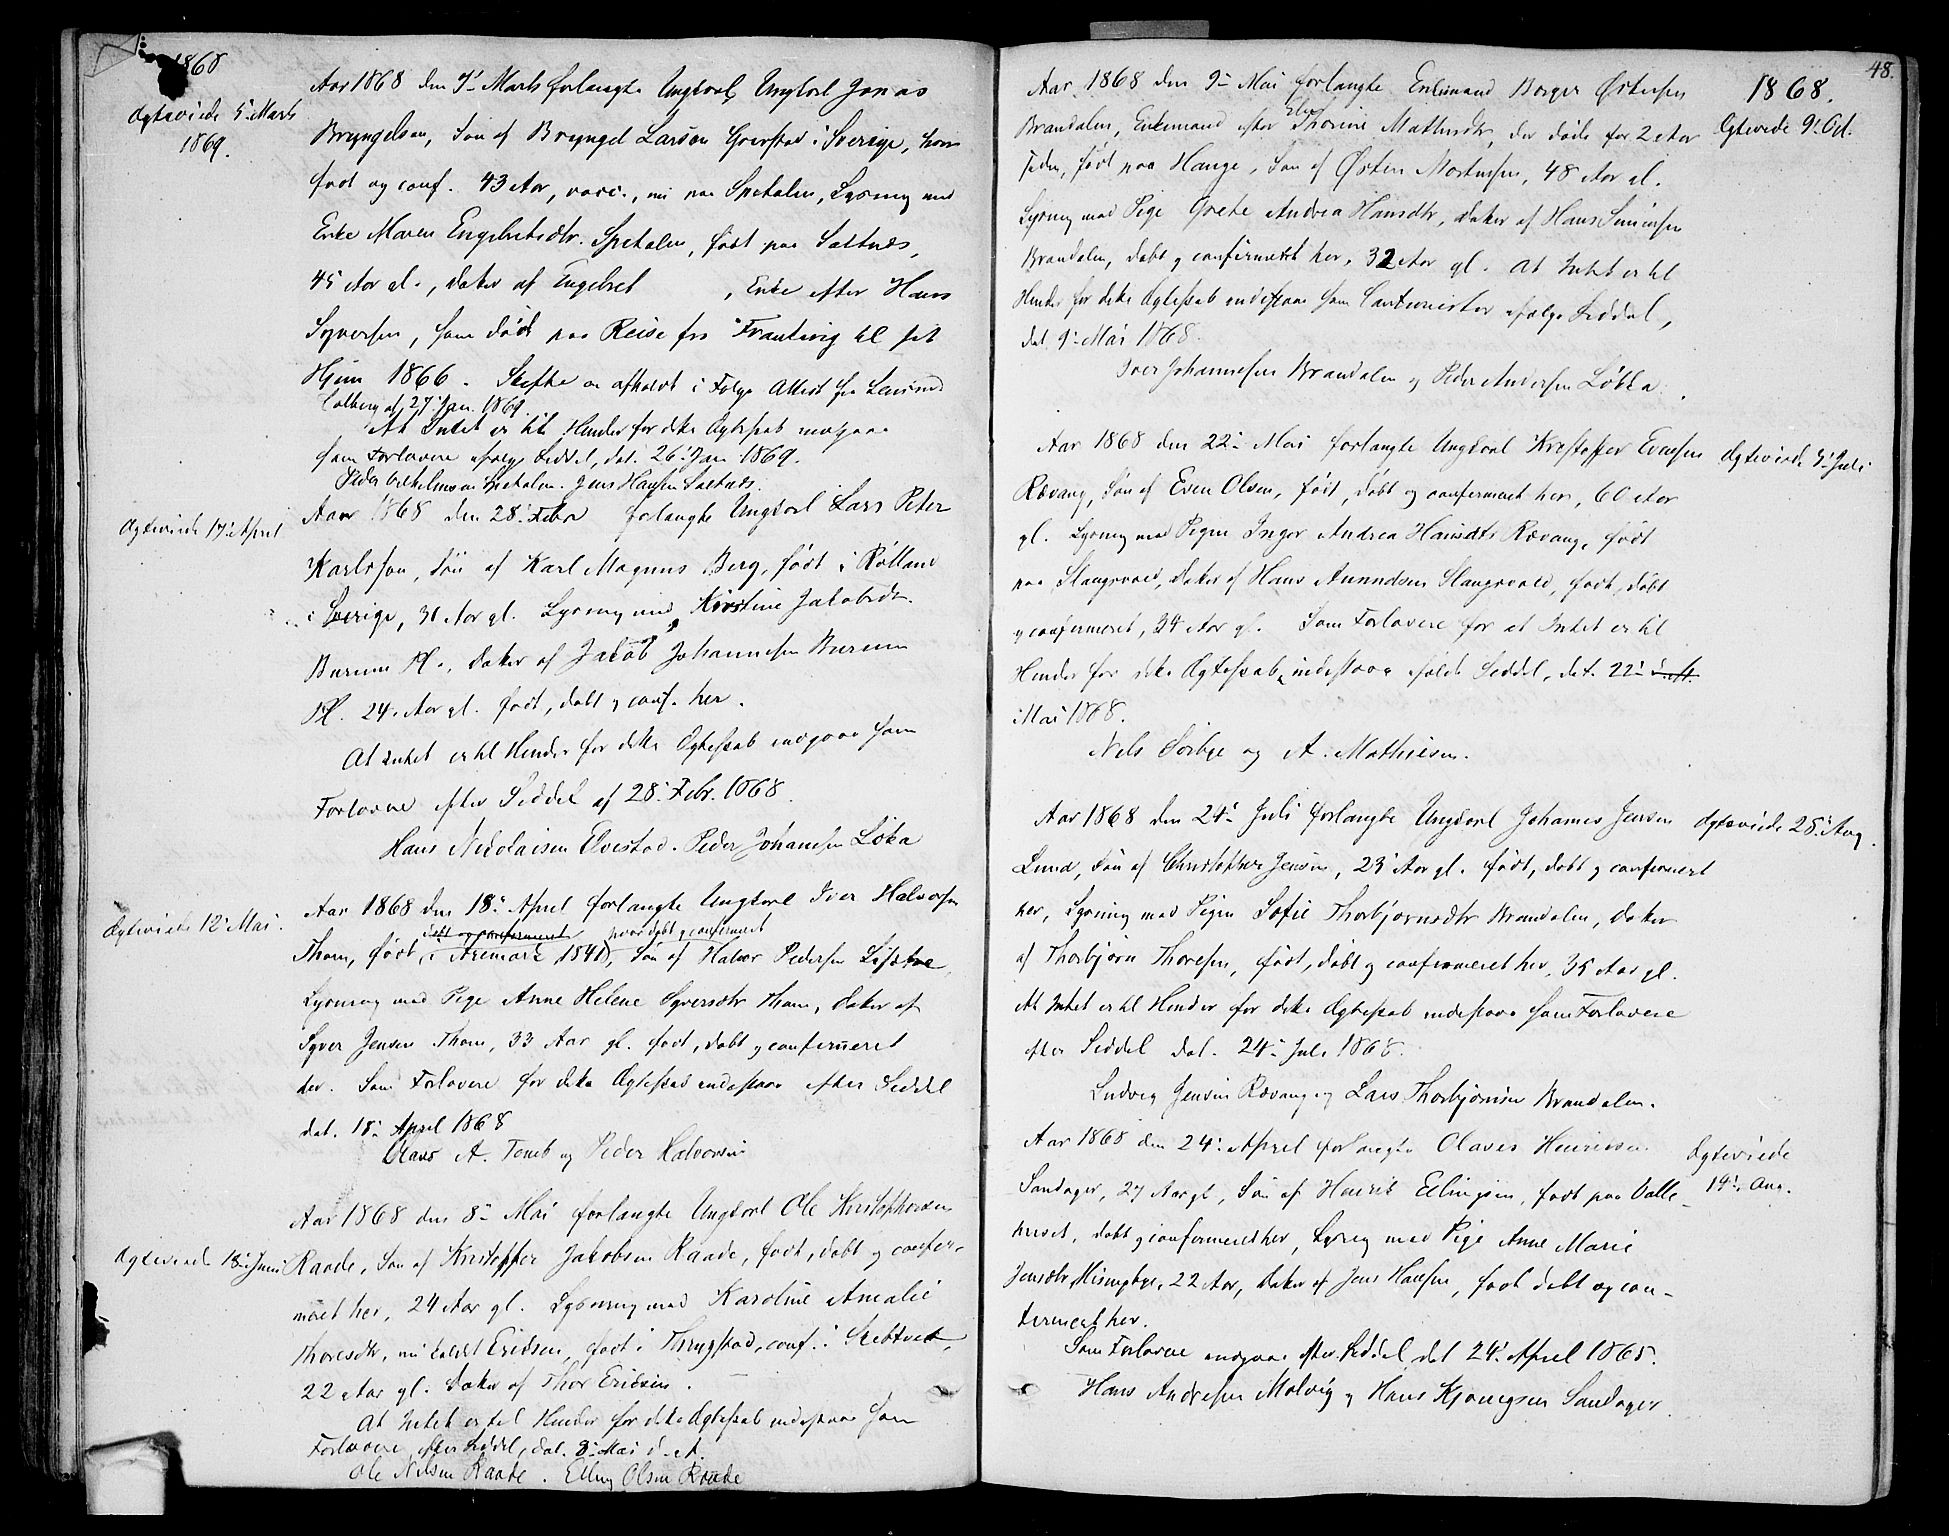 1868
Aar 1868 den 9de Marts forlangte Ungkarl, Ungkarl Jonas
Ægteviede 5te Marts
1869.
Bryngelsen, Søn af Bryngel Larsen i Sverige, hvor
født og conf. 43 Aar, vacc., nu paa Spetalen, Lysning med
Enke Maren Engebretsdtr. Spetalen, født paa Saltnæs,
45 Aar gl., Datter af Engebret , Enke efter Hans
Syversen, som døde paa Reise fra til sit
Hjem 1866. Skifte er afholdt i Følge Attest fra Lensmd
Colberg af 27 Jan. 1869.
At Intet er til Hinder for dette Ægteskab indgaae
som Forlovere ifølge Seddel, dat. 26 Jan 1869.
Peder Vilhelmsen Spetalen. Jens Hansen Saltnæs.
Ægteviede 17de April
Aar 1868 den 28 Febr forlangte Ungkarl Lars Peter
Karlsson, Søn af Karl Magnus Berg, født i Rølland
i Sverige, 31 Aar gl. Lysning med Kirstine Jakobsdtr.
Burum Pl., Datter af Jakob Johannesen Burum
Pl. 24 Aar gl. født, døbt og conf. her.
At Intet er til Hinder for dette Ægteskab indgaae som
Forlovere efter Seddel af 28 Febr. 1868.
Hans Nikolaisen Elvestad. Peder Johansen Løka
Ægteviede 12te Mai.
Aar 1868 den 18de April forlangte Ungkarl Iver Halvorsen
døbt og confirmeret døbt og confirmeret
Thom, født i Aremark 1841, Søn af Halvor Pedersen
Lysning med Pige Anne Helene Syversdtr Thom, Datter af
Syver Jensen Thom, 33 Aar gl. født, døbt og confirmeret
her. Som Forlovere for dette Ægteskab indestaae efter Seddel
dat. 18de April 1868
Olaus A. Tomb og Peder Halvorsen
Aar 1868 den 8de Mai forlangte Ungkarl Ole Kristophersen
Ægteviede 18de Juni
Raade, Søn af Kristoffer Jakobsen Raade, født, døbt og confir-
meret her, 24 Aar gl. Lysning med Karoline Amalie
Thoresdtr, nu kaldt Eriksen, født i Thrygstad, conf. i Skibtvet,
22 Aar gl. Datter af Thor Eriksen.
At Intet er til Hinder for dette Ægteskab indestaae som
Forlovere efter Seddel, dat. 8de Mai d. A.
Ole Nilsen Raade. Elling Olsen Raade
48.
1868.
Aar 1868 den 9de Mai forlangte Enkemand Borger Østensen
Ægteviede 9de Oct.
Brandalen, Enkemand efter Thorine Mathisdtr, der døde for 2 Aar
siden, født paa Hauge, Søn af Østen Mortensen, 48 Aar gl.
Lysning med Pige Grete Andrea Hansdtr, Datter af Hans Simensen
Brandalen, døbt og confirmeret her, 32 Aar gl. At Intet er til
Hinder for dette Ægteskab indestaae som Cautionister ifølge Seddel,
dat. 9de Mai 1868.
Iver Johannesen Brandalen og Peder Andersen Løkka.
Aar 1868 den 22de Mai forlangte Ungkarl Kristoffer Evensen
Ægteviede 3de Juli
Rævang, Søn af Even Olsen, født, døbt og confirmeret her, 60 Aar
gl. Lysning med Pigen Inger Andrea Hansdtr Rævang, født
paa Slangsvold, Datter af Hans Amundsen Slangsvold, født, døbt
og confirmeret, 34 Aar gl. Som Forlovere for at Intet er til
Hinder for dette Ægteskab indestaae ifølge Seddel, dat. 22de
Mai 1868.
Nels Sørbye og A. Mathiesen.
Aar 1868 den 24de Juli forlangte Ungkarl Johannes Jensen
Ægteviede 28de Aug.
Lund, Søn af Christopher Jensen, 23 Aar gl. født, døbt og confirmeret
her, Lysning med Pigen Sofie Thorbjørnsdtr Brandalen, Datter
af Thorbjørn Thoresen, født, døbt og confirmeret her, 35 Aar gl.
At Intet er til Hinder for dette Ægteskab indestaae som Forlovere
efter Seddel dat. 24de Juli 1868.
Ludvig Jensen Rævang og Lars Thorbjørnsen Brandalen.
Aar 1868 den 24de April forlangte Olaves Henriksen
Ægteviede
14de Aug.
Sandager, 27 Aar gl, Søn af Henrik Ellingsen, født paa Valle-
huset, døbt og confirmeret her, Lysng med Pige Anne Marie
Jensdtr Missingbye, 22 Aar, Datter af Jens Hansen, født døbt og con-
firmeret her.
Som Forlovere indgaae efter Seddel dat 24de April 1868.
Hans Andresen Molvig og Hans Sandager.